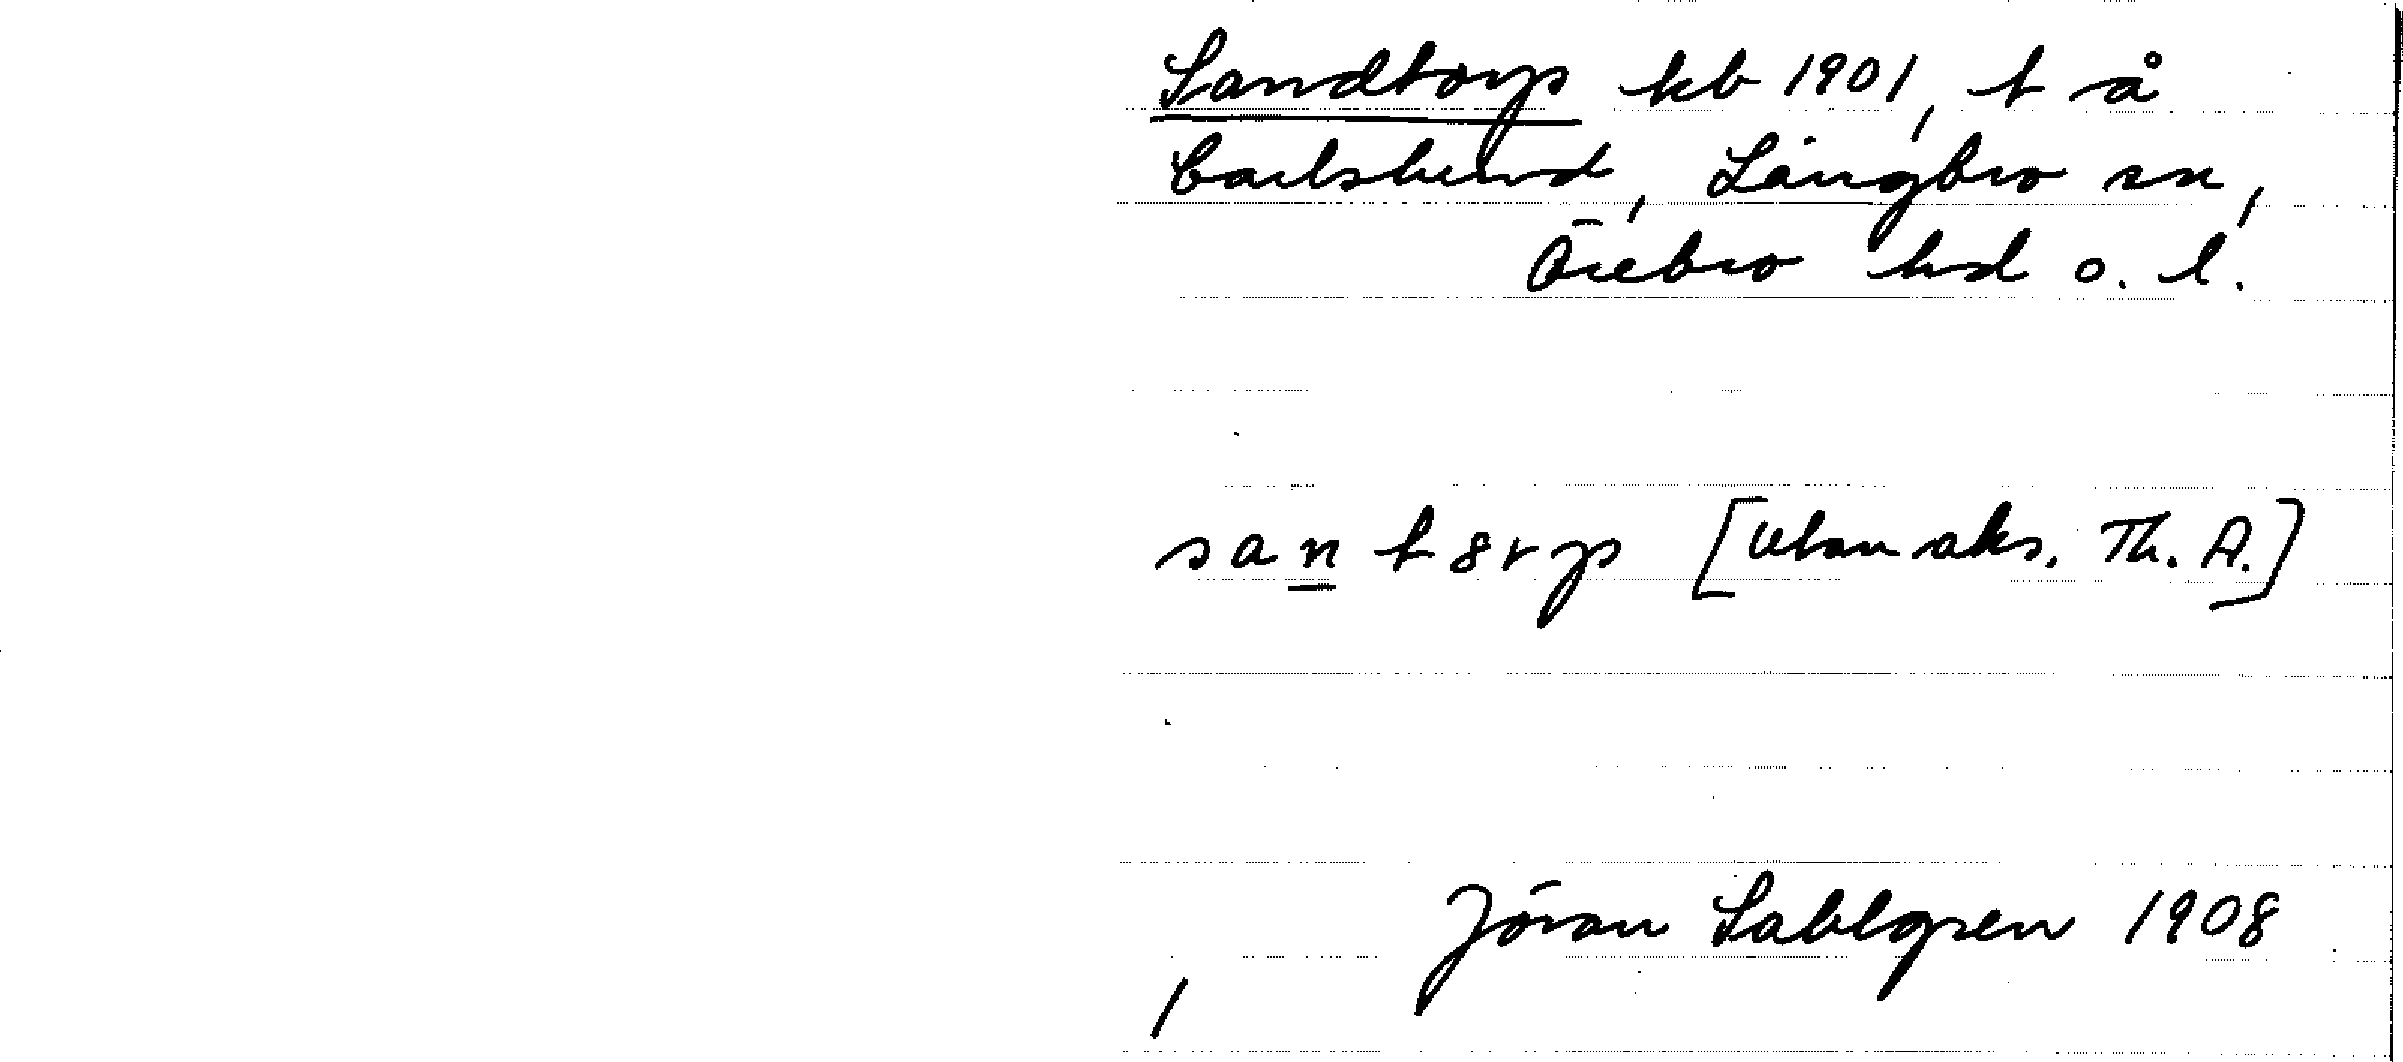 Sandtorp kb 1901, t å
Carlslund, Längbro sn,
Örebro hd o. l.
santorp [utan aks. Th. A.]
Jöran Sahlgren 1908